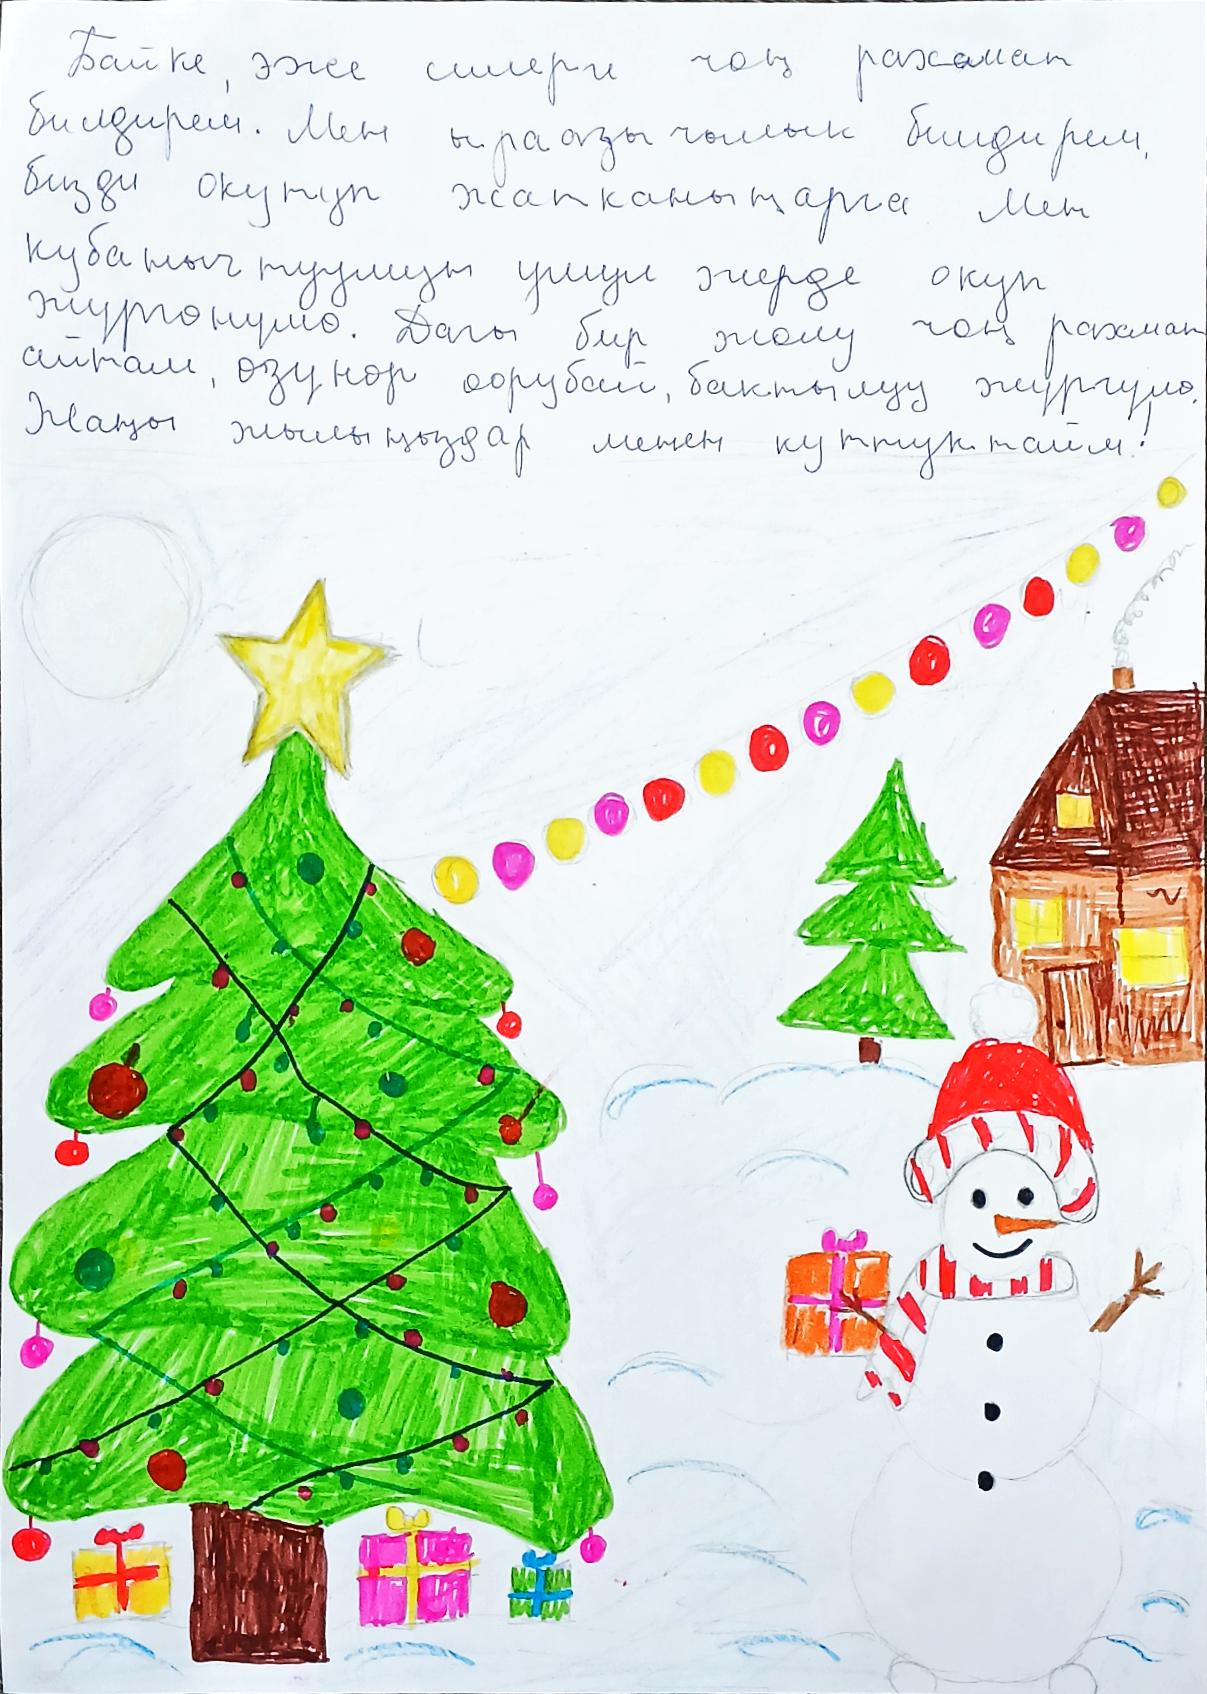 Байке, эже силерге чоң рахамат
билдирем. Мен ыраазычылык билдирем,
бизди окутуп жатканыңарга Мен
кубанычтуумун ушул жерде окуп
жүргөнүмө. Дагы бир жолу чоң рахмат
айтам, өзүңөр оорубай, бактылуу жүргүлө.
Жаңы жылыңыздар менен куттуктайм!